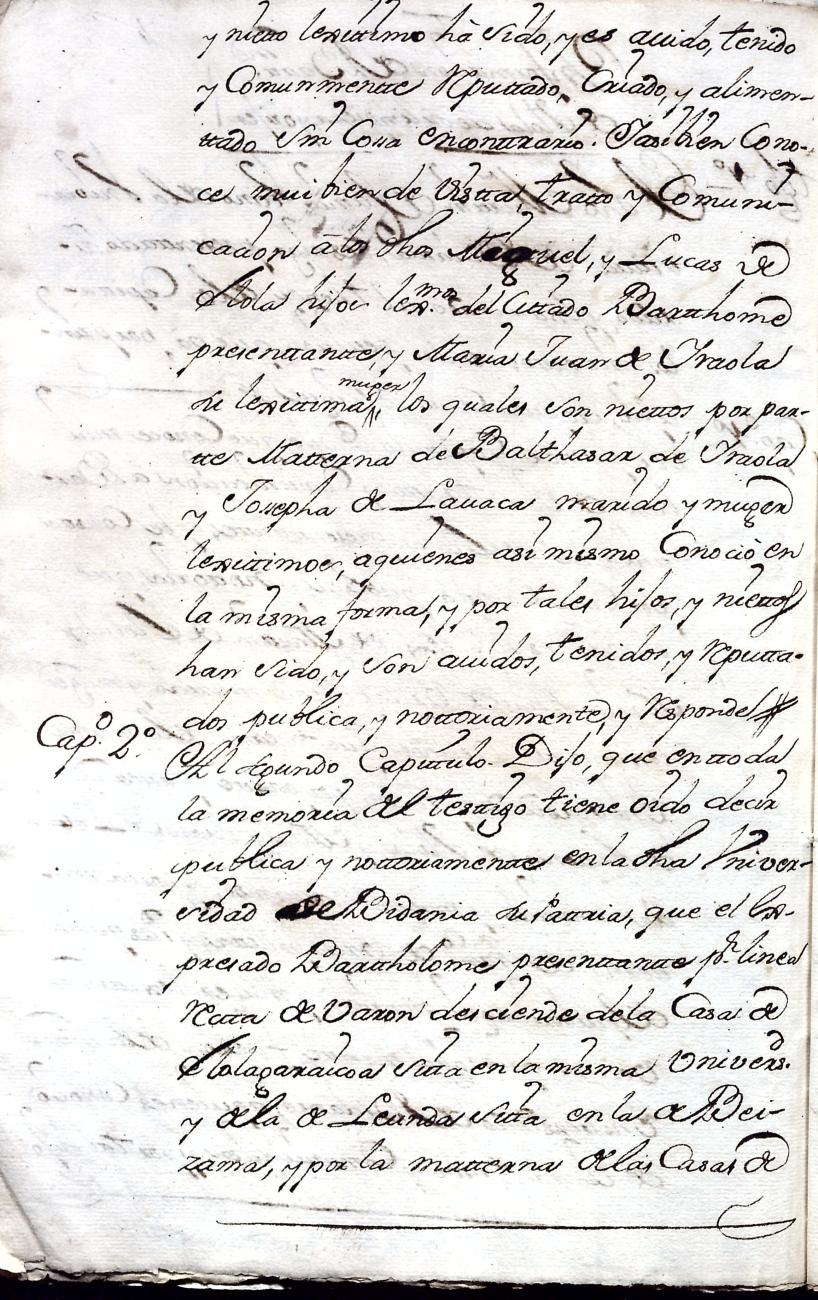 y nieto lexittimo hà sido, y es auido, tenido
y Comunmente Reputtado, Criado, y alimen-
ttado sin Cosa encontrario. Tambien Cono-
ce mui bien de Vistta, tratto y Comuni-
cacion à los dhos Miguel, y Lucas de
Olola hijos lex.mos del Cittado Barthome
presenttante, y Maria Juan de Yraola
su lexittima muger, los quales son niettos por par-
te Matterna de Balthasar de Yraola
y Josepha de Lauaca marido y muger
lexittimos, aquienes asimismo Conociò en
la misma forma, y por tales hijos, y niettos
han sido, y son auidos, tenidos, y Reputta-
dos publica, y nottoriamente, y Responde
Capo. 2o. Al segundo Capittulo Dijo, que enttoda
la memoria del testtigo tiene oido decir
publica y nottoriamentte en la dha Vniver-
sidad de Bidania su Pattria, que el Ex-
presado Barttholome presenttante pr. linea
Recta de Varon desciende dela Casa de
Ololagaraicoa sitta en la misma Univers.d
y dela de Leunda sitta en la de Bei-
zama, y por la matterna delas Casas de